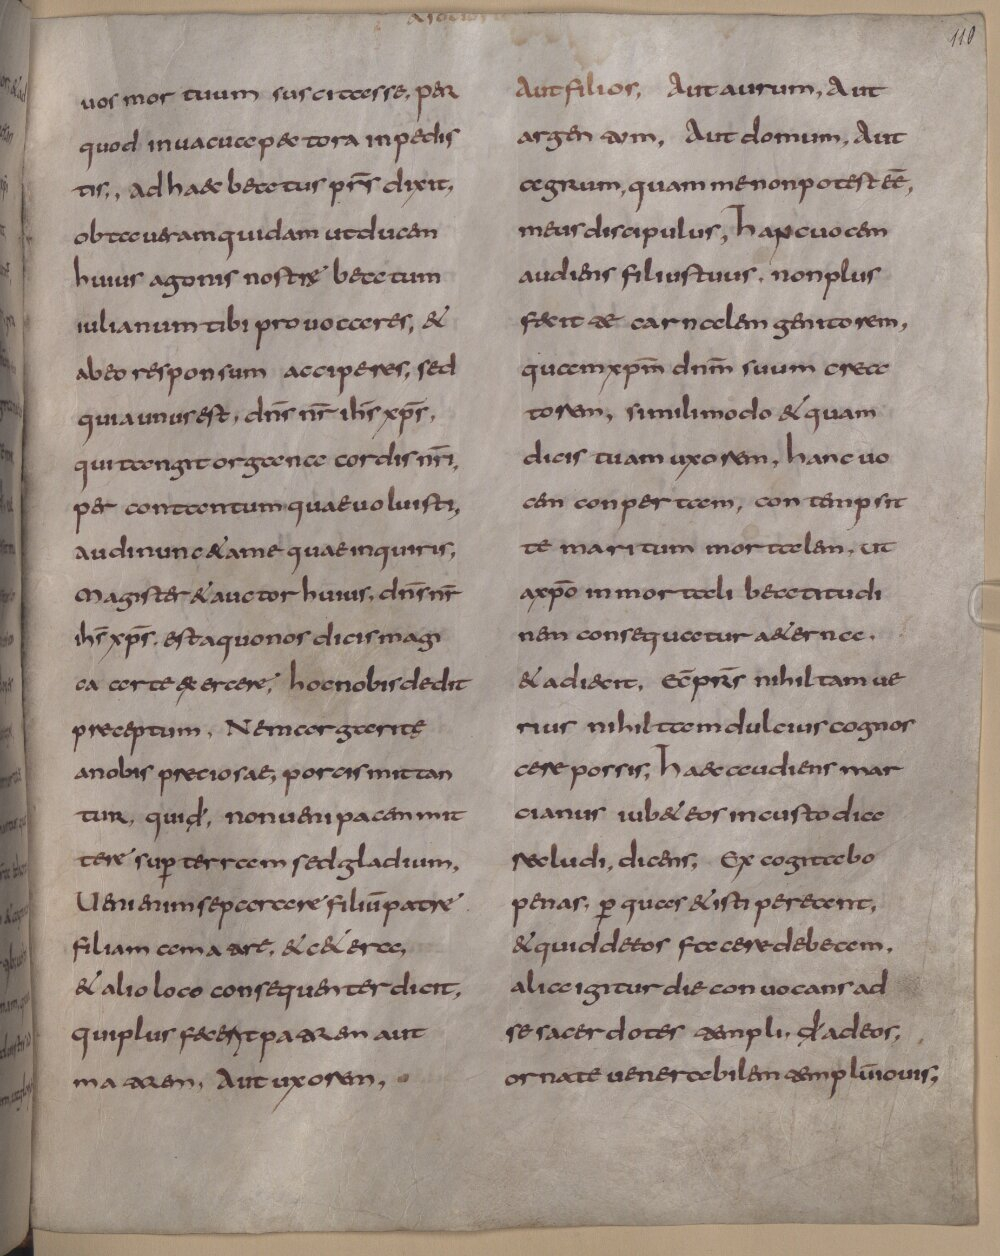 110
uos mortuum suscitasse, per
quod in uacua pectora inpedis
tis,, ad haec beatus prs̄ dixit,
obtaueram quidam ut ducem
huius agonis nostrę beatum
iulianum tibi prouocares, &
ab eo responsum acciperes, sed
quia unus est, dns̄ nr̄ ihs̄ xps̄,
qui tangit organa cordis nr̄i,
per contantum quae uoluisti,
audi nunc & a me quae inquiris,
Magister & auctor huius, dns̄ nr̄
ihs̄ xps̄, est a quo nos dicis magi
ca arte exercere, hoc nobis dedit
preceptum, Ne margaritę
a nobis preciosae, porcis mittan
tur, quiđ, non ueni pacem mit
tere sup̱ terram sed gladium,
Ueni enim separare filiū patre
filiam a matre, & cetera,
& alio loco consequenter dicit,
qui plus fecerit patrem aut
matrem, Aut uxorem,
Aut filios, Aut aurum, Aut
argentum, Aut domum, Aut
agrum, quam me non potest eē,
meus discipulus, hanc uocem
audiens filius tuus, non plus
fecit te carnalem genitorem,
quam xpm̄ dnm̄ suum crea
torem, simili modo & quam
dicis tuam uxorem, hanc uo
cem conpertam, contempsit
te maritum mortalem, ut
a xpō inmortali beatitudi
nem consequatur aeterna.
& adiecit, Ec̄ prs̄ nihil tam ue
rius nihil tam dulcius cognos
cere possis, haec audiens mar
cianus iubet eos in custodia
recludi, dicens, Excogitabo
penas, ꝑ quas & isti pereant,
& quid de eos facere debeam,
alia igitur die conuocans ad
se sacerdotes templi, đ ad eos,
ornate uenerabilem templū iouis,